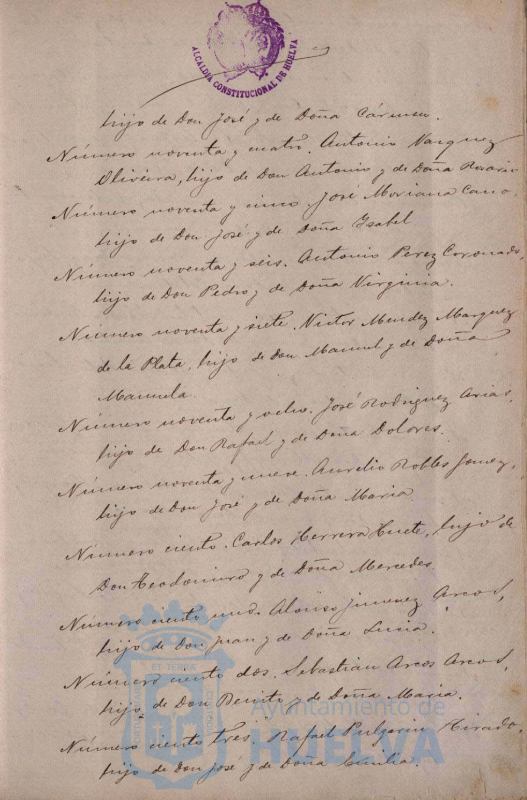 ALCALDIA CONSTITUCIONAL DE HUELVA
hijo de Don José y de Doña Cármen.
Número noventa y cuatro. Antonio Vazquez
Oliveira, hijo de Don Antonio y de Doña Rosario
Número noventa y cinco. José Moriana Cano,
hijo de Don José y de Doña Isabel
Número noventa y seis. Antonio Perez Coronado,
hijo de Don Pedro y de Doña Virginia.
Número noventa y siete. Victor Mendez Marquez
de la Plata, hijo de Don Manuel y de Doña
Manuela.
Número noventa y ocho. José Rodriguez Arias,
hijo de Don Rafael y de Doña Dolores.
Número noventa y nueve. Aurelio Robles Gomez,
hijo de Don José y de Doña Maria
Número ciento. Carlos Herrera Huete, hijo de
Don Teodomiro y de Doña Mercedes
Número ciento uno. Alonso Jimenez Arcos,
hijo de Don Juan y de Doña Lucia.
Número ciento dos. Sebastian Arcos Arcos,
hijo de Don Benito y de Doña Maria.
Número ciento tres. Rafael Pulgarin Tirado,
hijo de Don José y de Doña Emilia.
ET TERRÆ
Ayuntamiento de
HUELVA